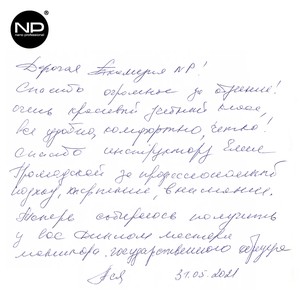 NP
nano professional
Дорогая Академия NP!
Спасибо огромное за обучение!
очень красивый уютный класс,
все удобно, комфортно, четко!
Спасибо инструктору Елене
за профессиональный
подход, терпение, внимание.
Теперь собираюсь получить
у вас диплом мастера
маникюра государственного образца
Ася 31.05.2021